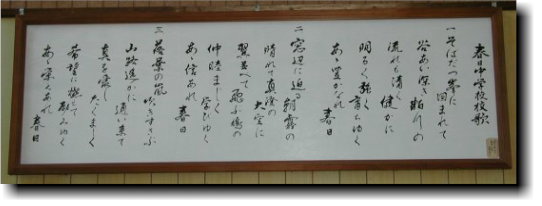 春日中学校校歌
一 そばだつ峯に 囲まれて
谷あい深き 柏川の
流れも清く 健かに
明るく強く 育ちゆく
あゝ豊かなれ 春日
二 窓辺に迫る 朝霧の
晴れて真澄の 大空に
翼並べて 飛ぶ鳥の
仲睦まじく 学びゆく
あゝ 春日
三 の嵐 吹きすさぶ
山路遥かに 通い来て
真を愛し たくましく
希望に燃えて 励みゆく
あゝ栄えあれ 春日